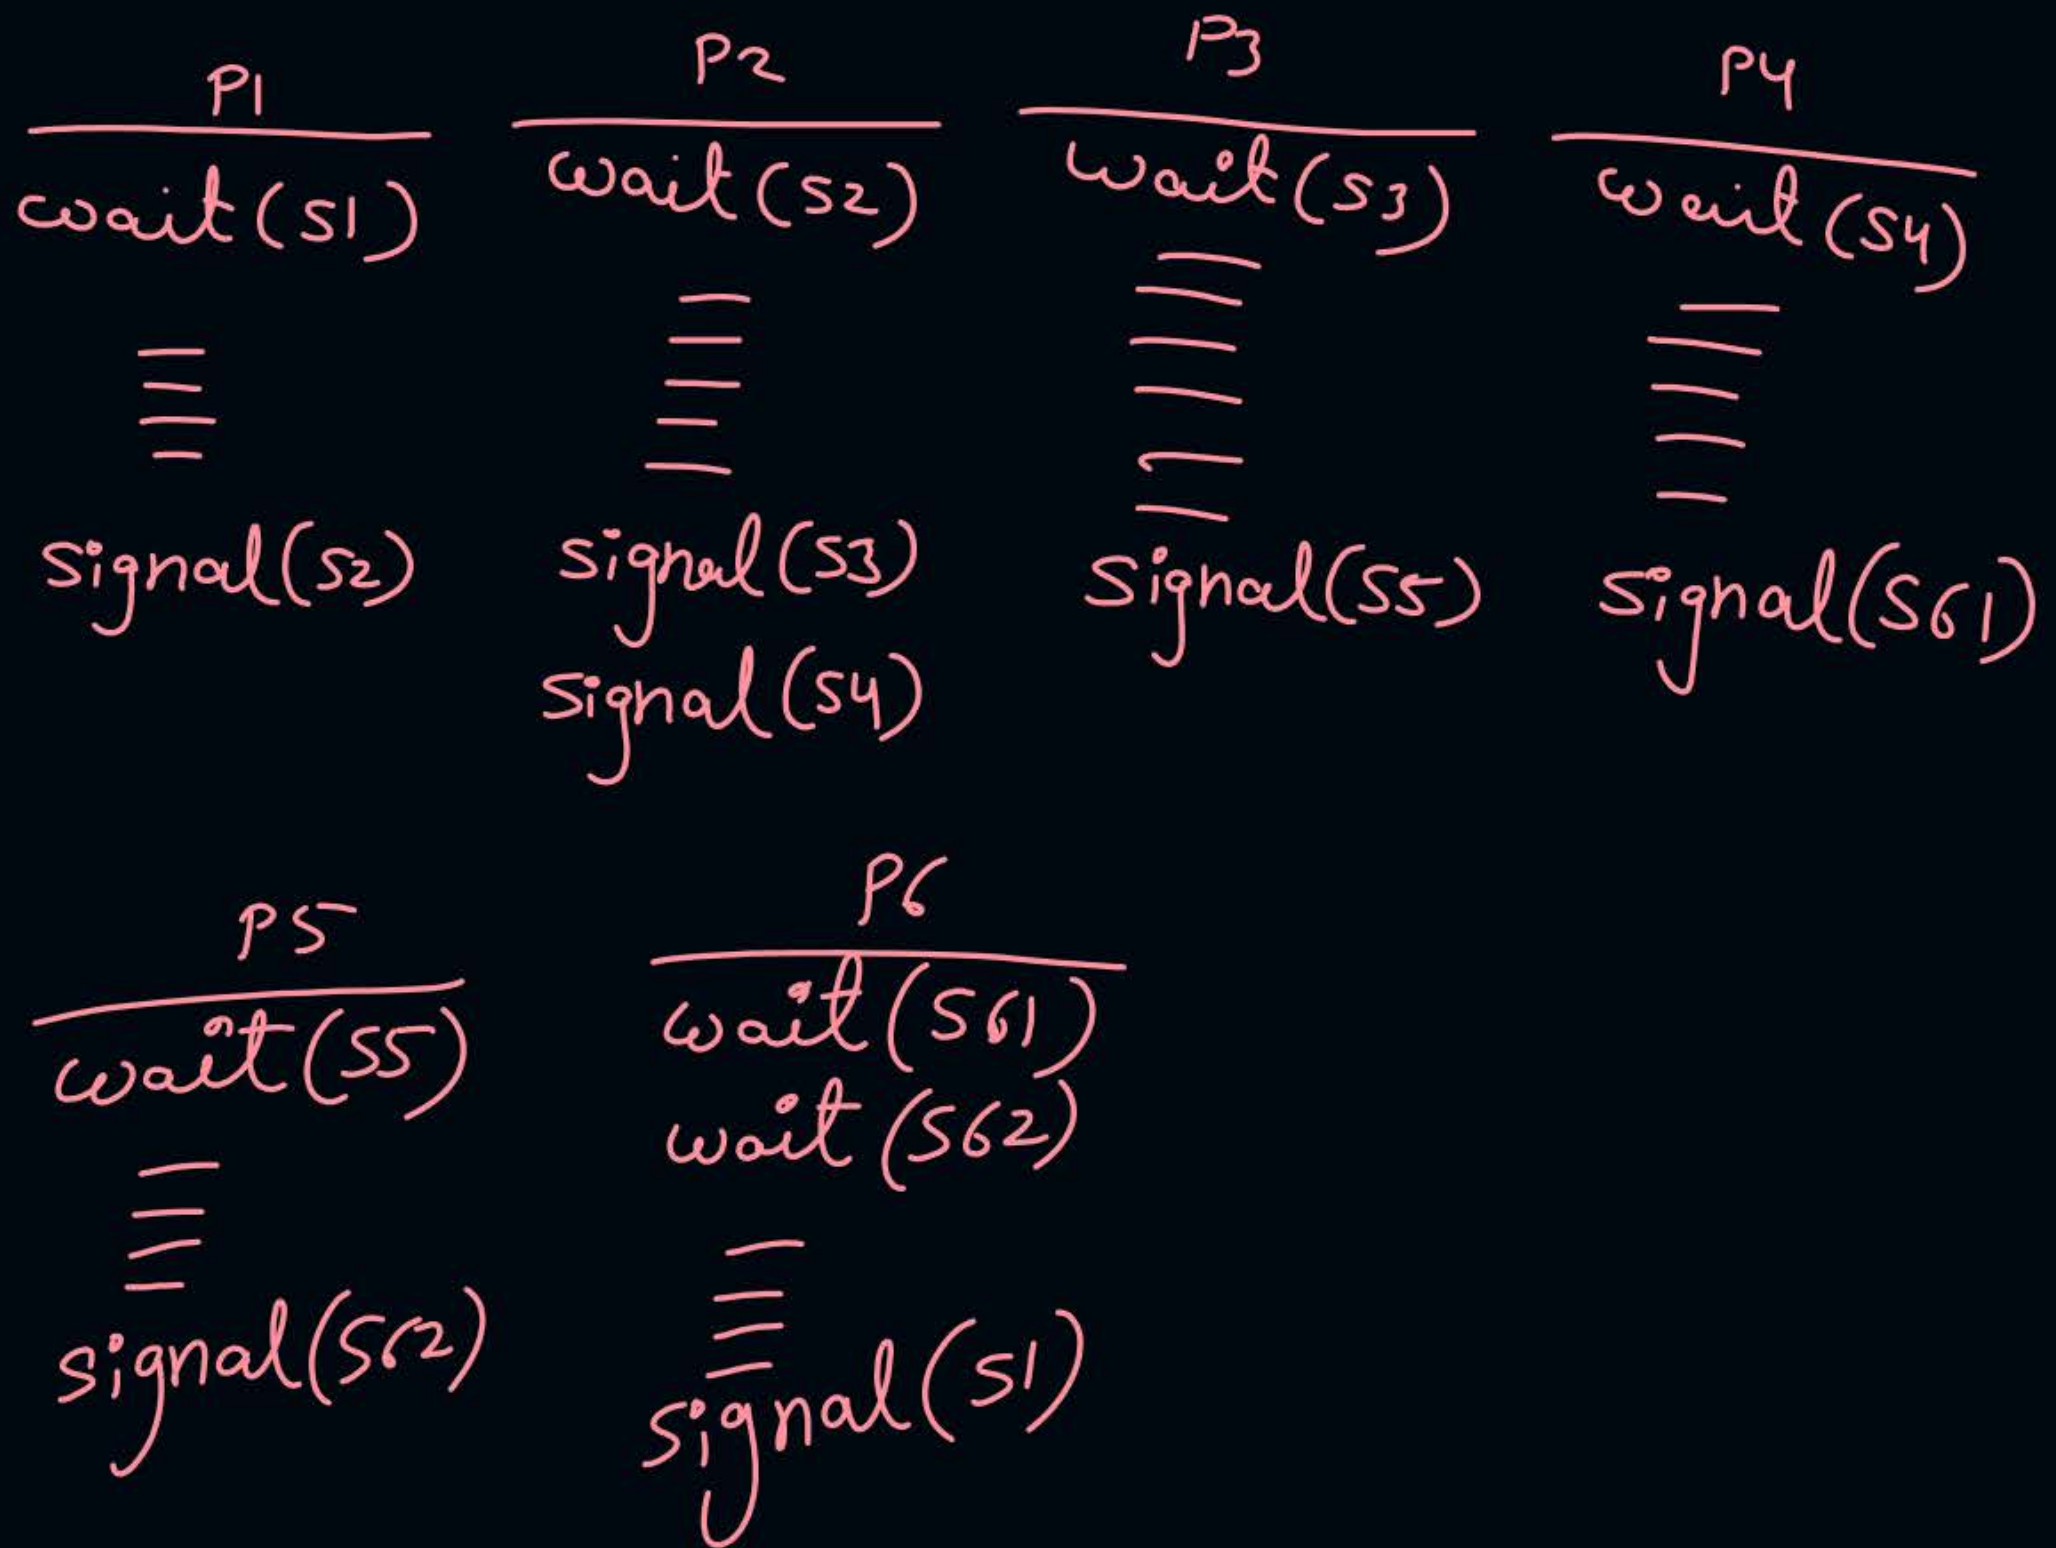 P1
wait(S1)
signal(S2)
P2
wait(S2)
signal(S3)
signal(S4)
P3
wait(S3)
signal(S5)
P4
wait(S4)
signal(S61)
P5
wait(S5)
signal(S62)
P6
wait(S61)
wait(S62)
signal(S1)